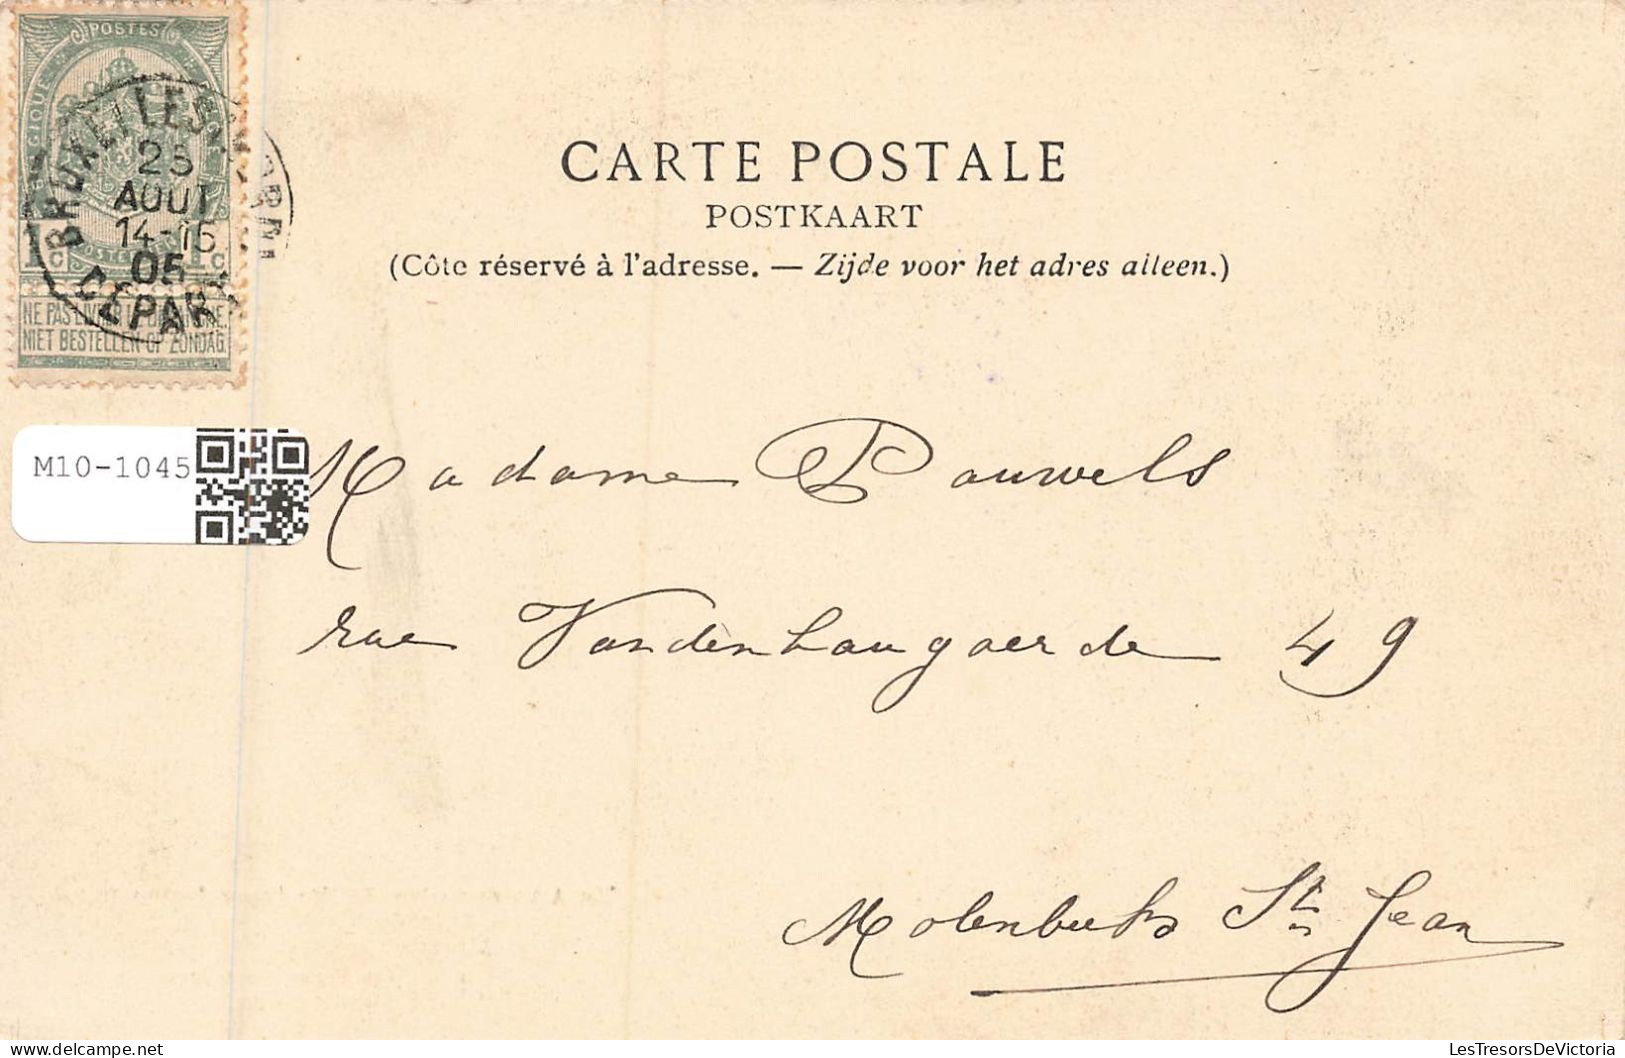 POSTES
BRUXELLES
25
AOUT
14-15
05
DEPART
1 C
1 C
NE PAS LIVRER LE DIMANCHE.
NIET BESTELLEN OP ZONDAG.
CARTE POSTALE
POSTKAART
(Côte réservé à l'adresse. — Zijde voor het adres alleen.)
M10-1045
Madame Pauwels
rue Vandenhaugaerde 49
Molenbeek St Jean
LesTresorsDeVictoria
www.delcampe.net